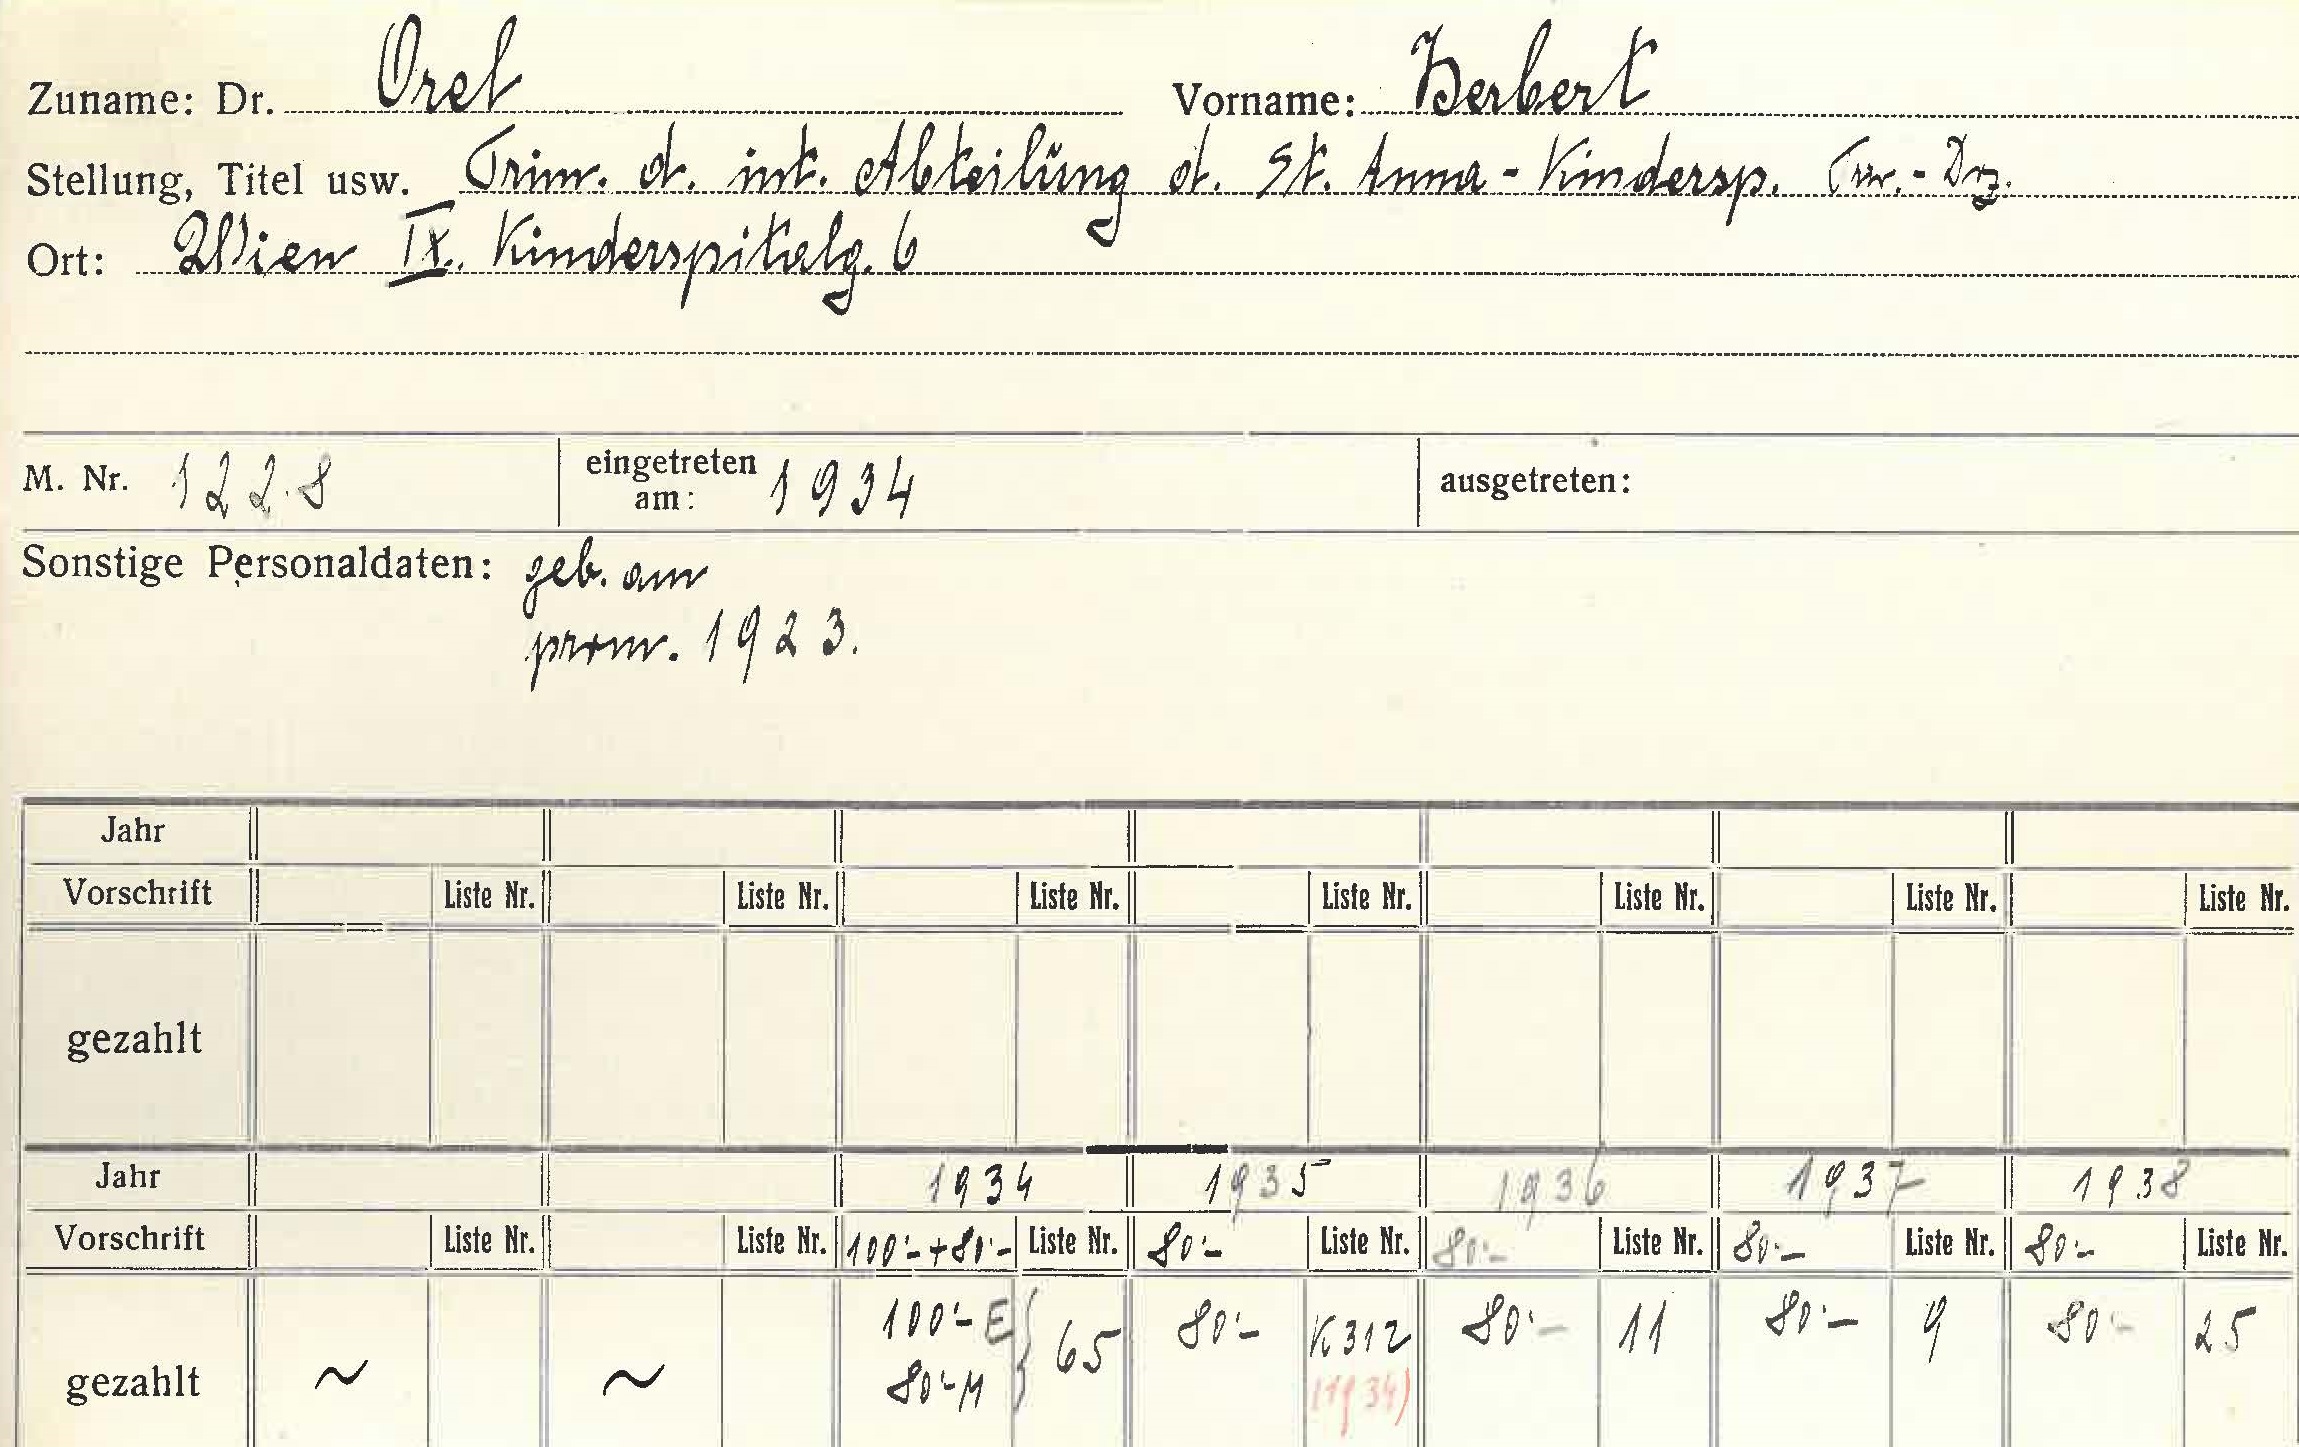 Zuname: Dr. Orel Vorname: Herbert
Stellung, Titel usw. Prim. d. int. Abteilung d. St. Anna-Kindersp. Priv.-Doz.
Ort: Wien IX. Kinderspitalg. 6
M. Nr. 1228 eingetreten am: 1934 ausgetreten:
Sonstige Personaldaten: geb. am
prom. 1923.
Jahr
Vorschrift Liste Nr. Liste Nr. Liste Nr. Liste Nr. Liste Nr. Liste Nr. Liste Nr.
gezahlt
Jahr 1934 1935 1936 1937 1938
Vorschrift Liste Nr. Liste Nr. 100·- + 80·- Liste Nr. 80·- Liste Nr. 80·- Liste Nr. 80·- Liste Nr. 80·- Liste Nr.
gezahlt ~ ~ 100·- E 80·- M } 65 80·- K312 (1934) 80·- 11 80·- 9 80·- 25